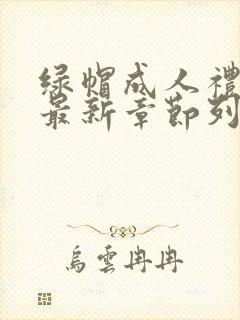 绿帽成人禮
最新章節列
烏雲冉冉